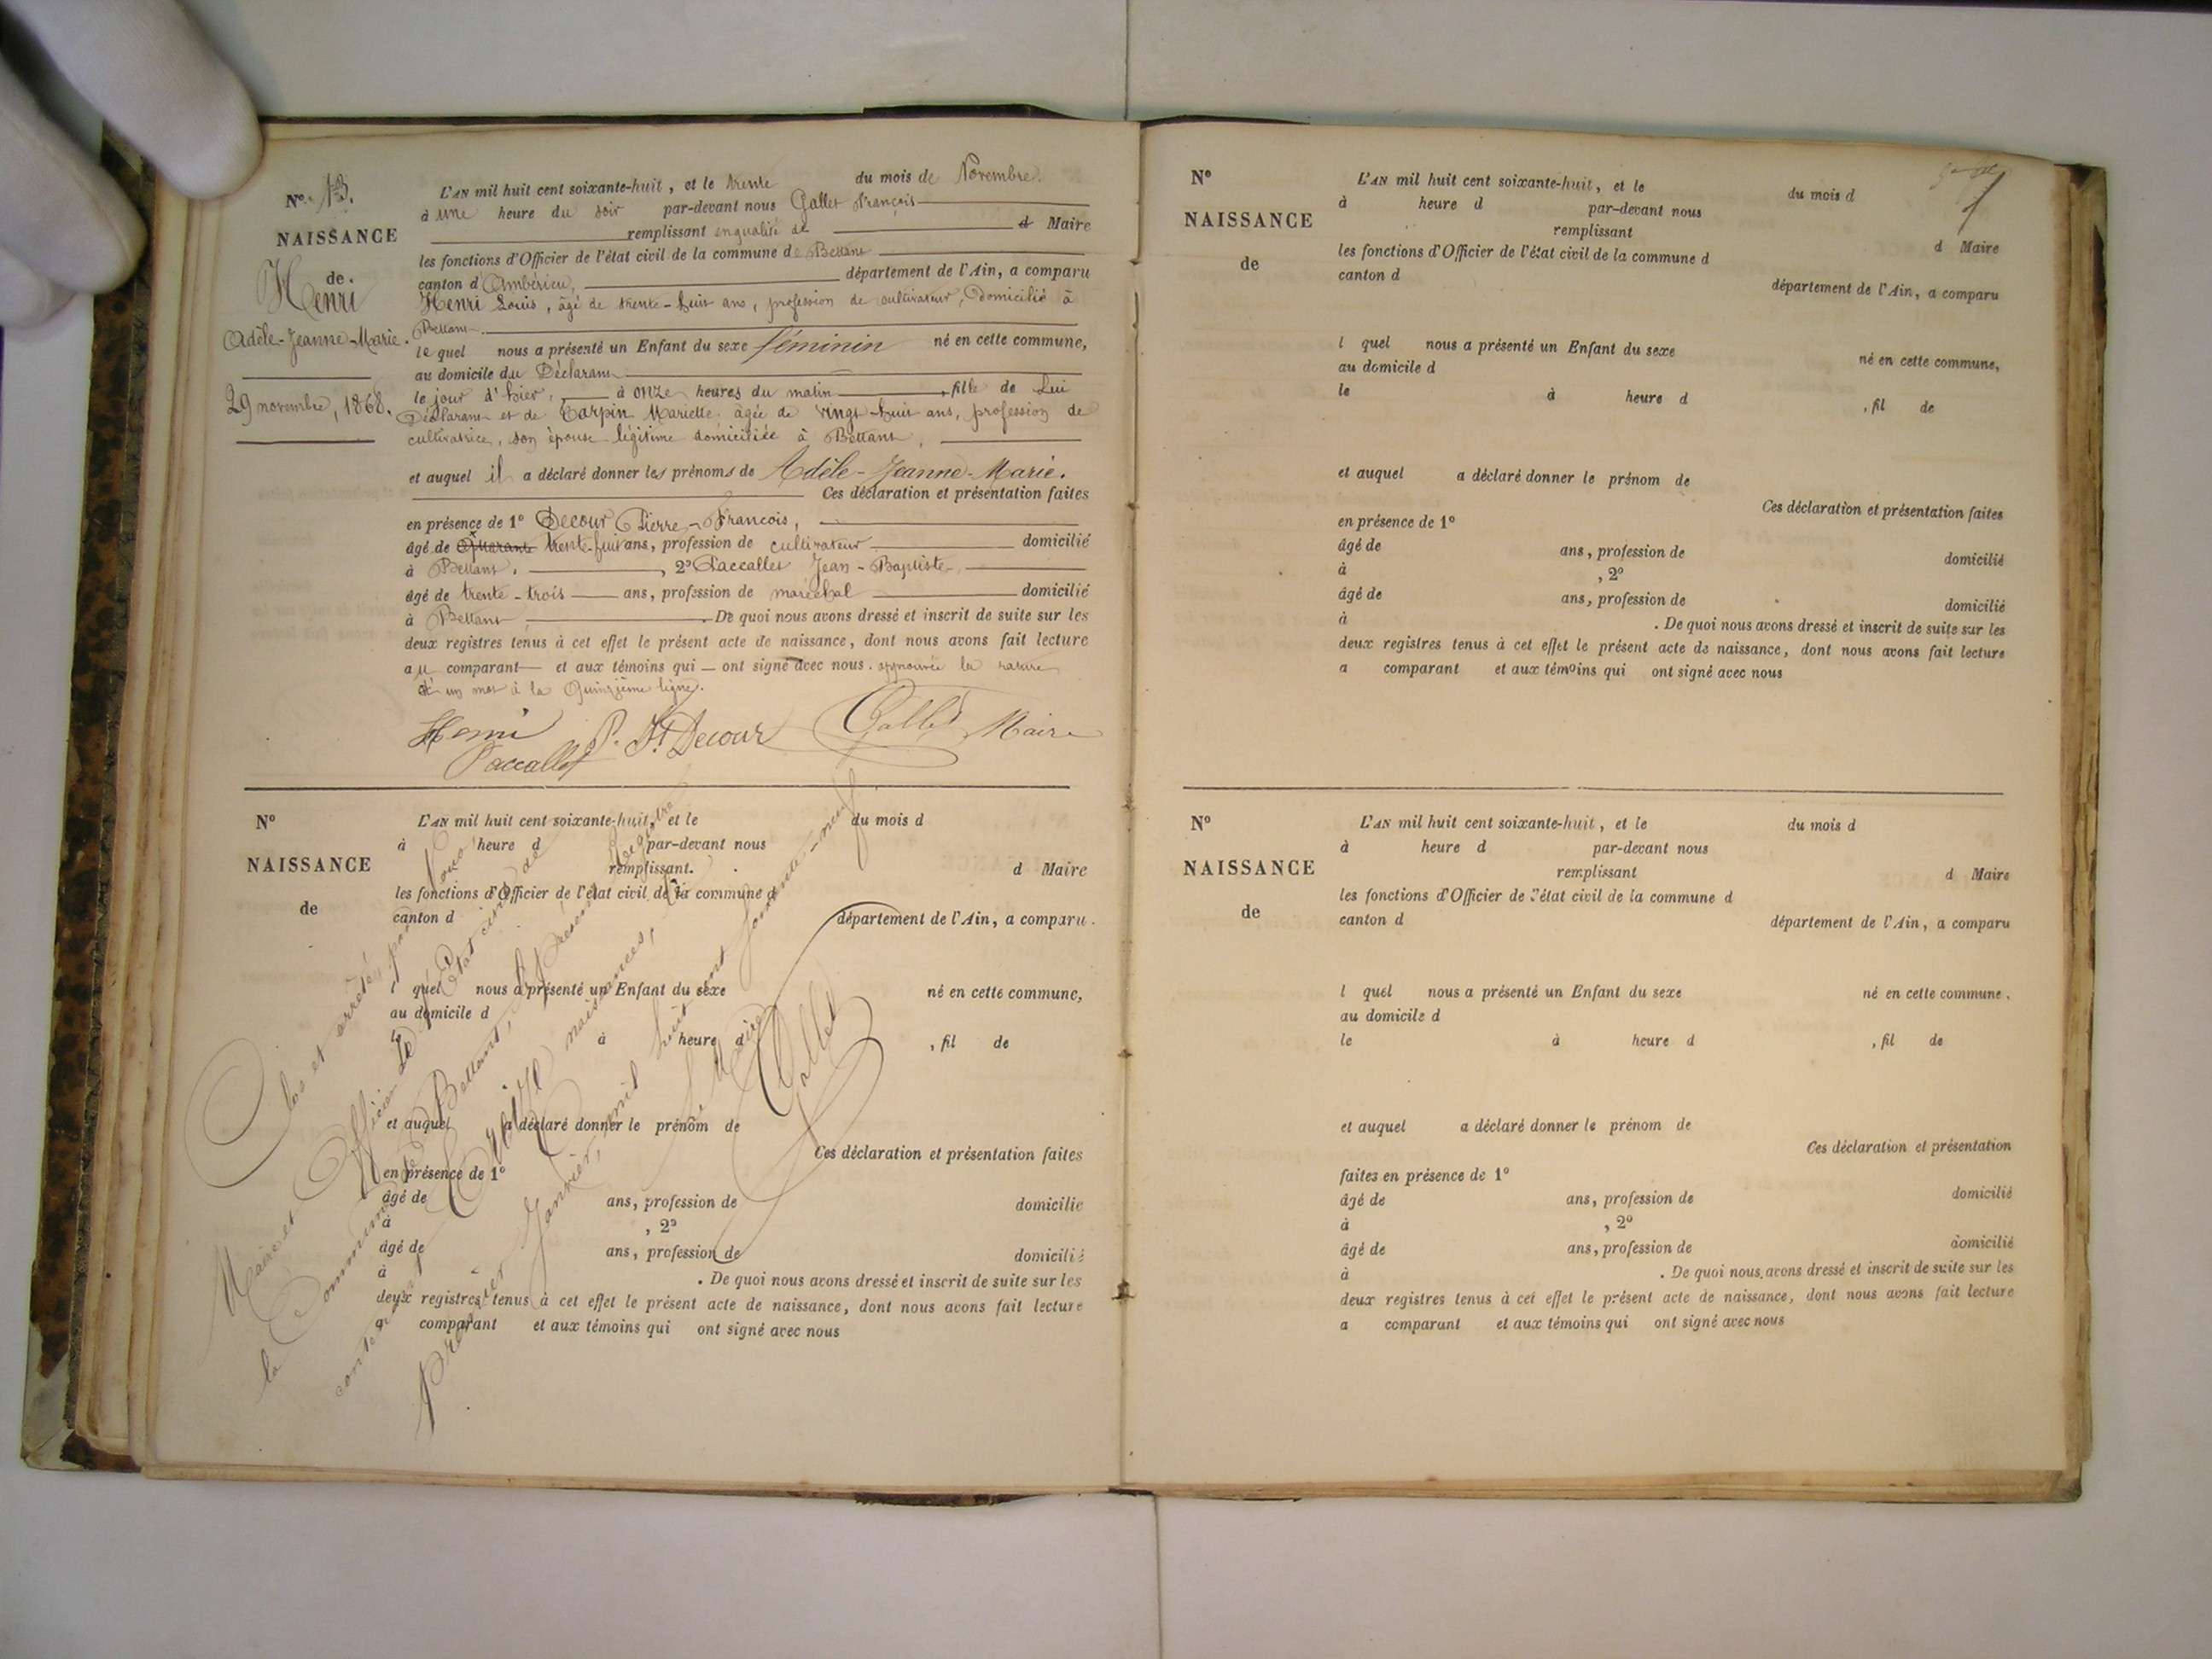 N° 13.
NAISSANCE
de
Henri
Adèle-Jeanne-Marie.
29 novembre, 1868.
L'AN mil huit cent soixante-huit, et le trente du mois de Novembre.
à une heure du soir par-devant nous Gallet François
remplissant en qualité de d Maire
les fonctions d'Officier de l'état civil de la commune de Bettant
canton d'Ambérieu, département de l'Ain, a comparu
Henri Louis, âgé de trente-huit ans, profession de cultivateur, Domicilié à
Bettant.
lequel nous a présenté un Enfant du sexe féminin né en cette commune,
au domicile du Déclarant
le jour d'hier, à onze heures du matin, fille de Lui
Déclarant et de Carpin Mariette âgée de vingt-huit ans, profession de
cultivatrice, son épouse légitime domiciliée à Bettant,
et auquel il a déclaré donner les prénoms de Adèle-Jeanne-Marie.
Ces déclaration et présentation faites
en présence de 1° Decour Pierre-François,
âgé de Quarante trente-huit ans, profession de cultivateur domicilié
à Bettant, 2° Paccallet Jean-Baptiste
âgé de trente-trois ans, profession de maréchal domicilié
à Bettant. De quoi nous avons dressé et inscrit de suite sur les
deux registres tenus à cet effet le présent acte de naissance, dont nous avons fait lecture
au comparant et aux témoins qui ont signé avec nous. approuvée la rature
d'un mot à la Quinzième ligne.
Henri P. Decour Gallet Maire
Paccallet
N°
NAISSANCE
de
L'AN mil huit cent soixante-huit, et le du mois d
à heure d par-devant nous
remplissant. d Maire
les fonctions d'Officier de l'état civil de la commune d
canton d département de l'Ain, a comparu.
l quel nous a présenté un Enfant du sexe né en cette commune,
au domicile d
le à heure d , fil de
et auquel a déclaré donner le prénom de
Ces déclaration et présentation faites
en présence de 1°
âgé de ans, profession de domicilié
à , 2°
âgé de ans, profession de domicilié
à . De quoi nous avons dressé et inscrit de suite sur les
deux registres tenus à cet effet le présent acte de naissance, dont nous avons fait lecture
a comparant et aux témoins qui ont signé avec nous
Clos et arrêté par Nous
Maire et Officier de l'état civil de
la Commune de Bettant, le présent Registre
contenant treize naissances, le
premier Janvier, mil huit cent soixante-neuf
Le Maire
Gallet
7
N°
NAISSANCE
de
L'AN mil huit cent soixante-huit, et le du mois d
à heure d par-devant nous
remplissant
d Maire
les fonctions d'Officier de l'état civil de la commune d
canton d département de l'Ain, a comparu
l quel nous a présenté un Enfant du sexe né en cette commune,
au domicile d
le à heure d , fil de
et auquel a déclaré donner le prénom de
Ces déclaration et présentation faites
en présence de 1°
âgé de ans, profession de domicilié
à , 2°
âgé de ans, profession de domicilié
à . De quoi nous avons dressé et inscrit de suite sur les
deux registres tenus à cet effet le présent acte de naissance, dont nous avons fait lecture
a comparant et aux témoins qui ont signé avec nous
N°
NAISSANCE
de
L'AN mil huit cent soixante-huit, et le du mois d
à heure d par-devant nous
remplissant d Maire
les fonctions d'Officier de l'état civil de la commune d
canton d département de l'Ain, a comparu
l quel nous a présenté un Enfant du sexe né en cette commune.
au domicile d
le à heure d , fil de
et auquel a déclaré donner le prénom de
Ces déclaration et présentation
faites en présence de 1°
âgé de ans, profession de domicilié
à , 2°
âgé de ans, profession de domicilié
à . De quoi nous avons dressé et inscrit de suite sur les
deux registres tenus à cet effet le présent acte de naissance, dont nous avons fait lecture
a comparant et aux témoins qui ont signé avec nous